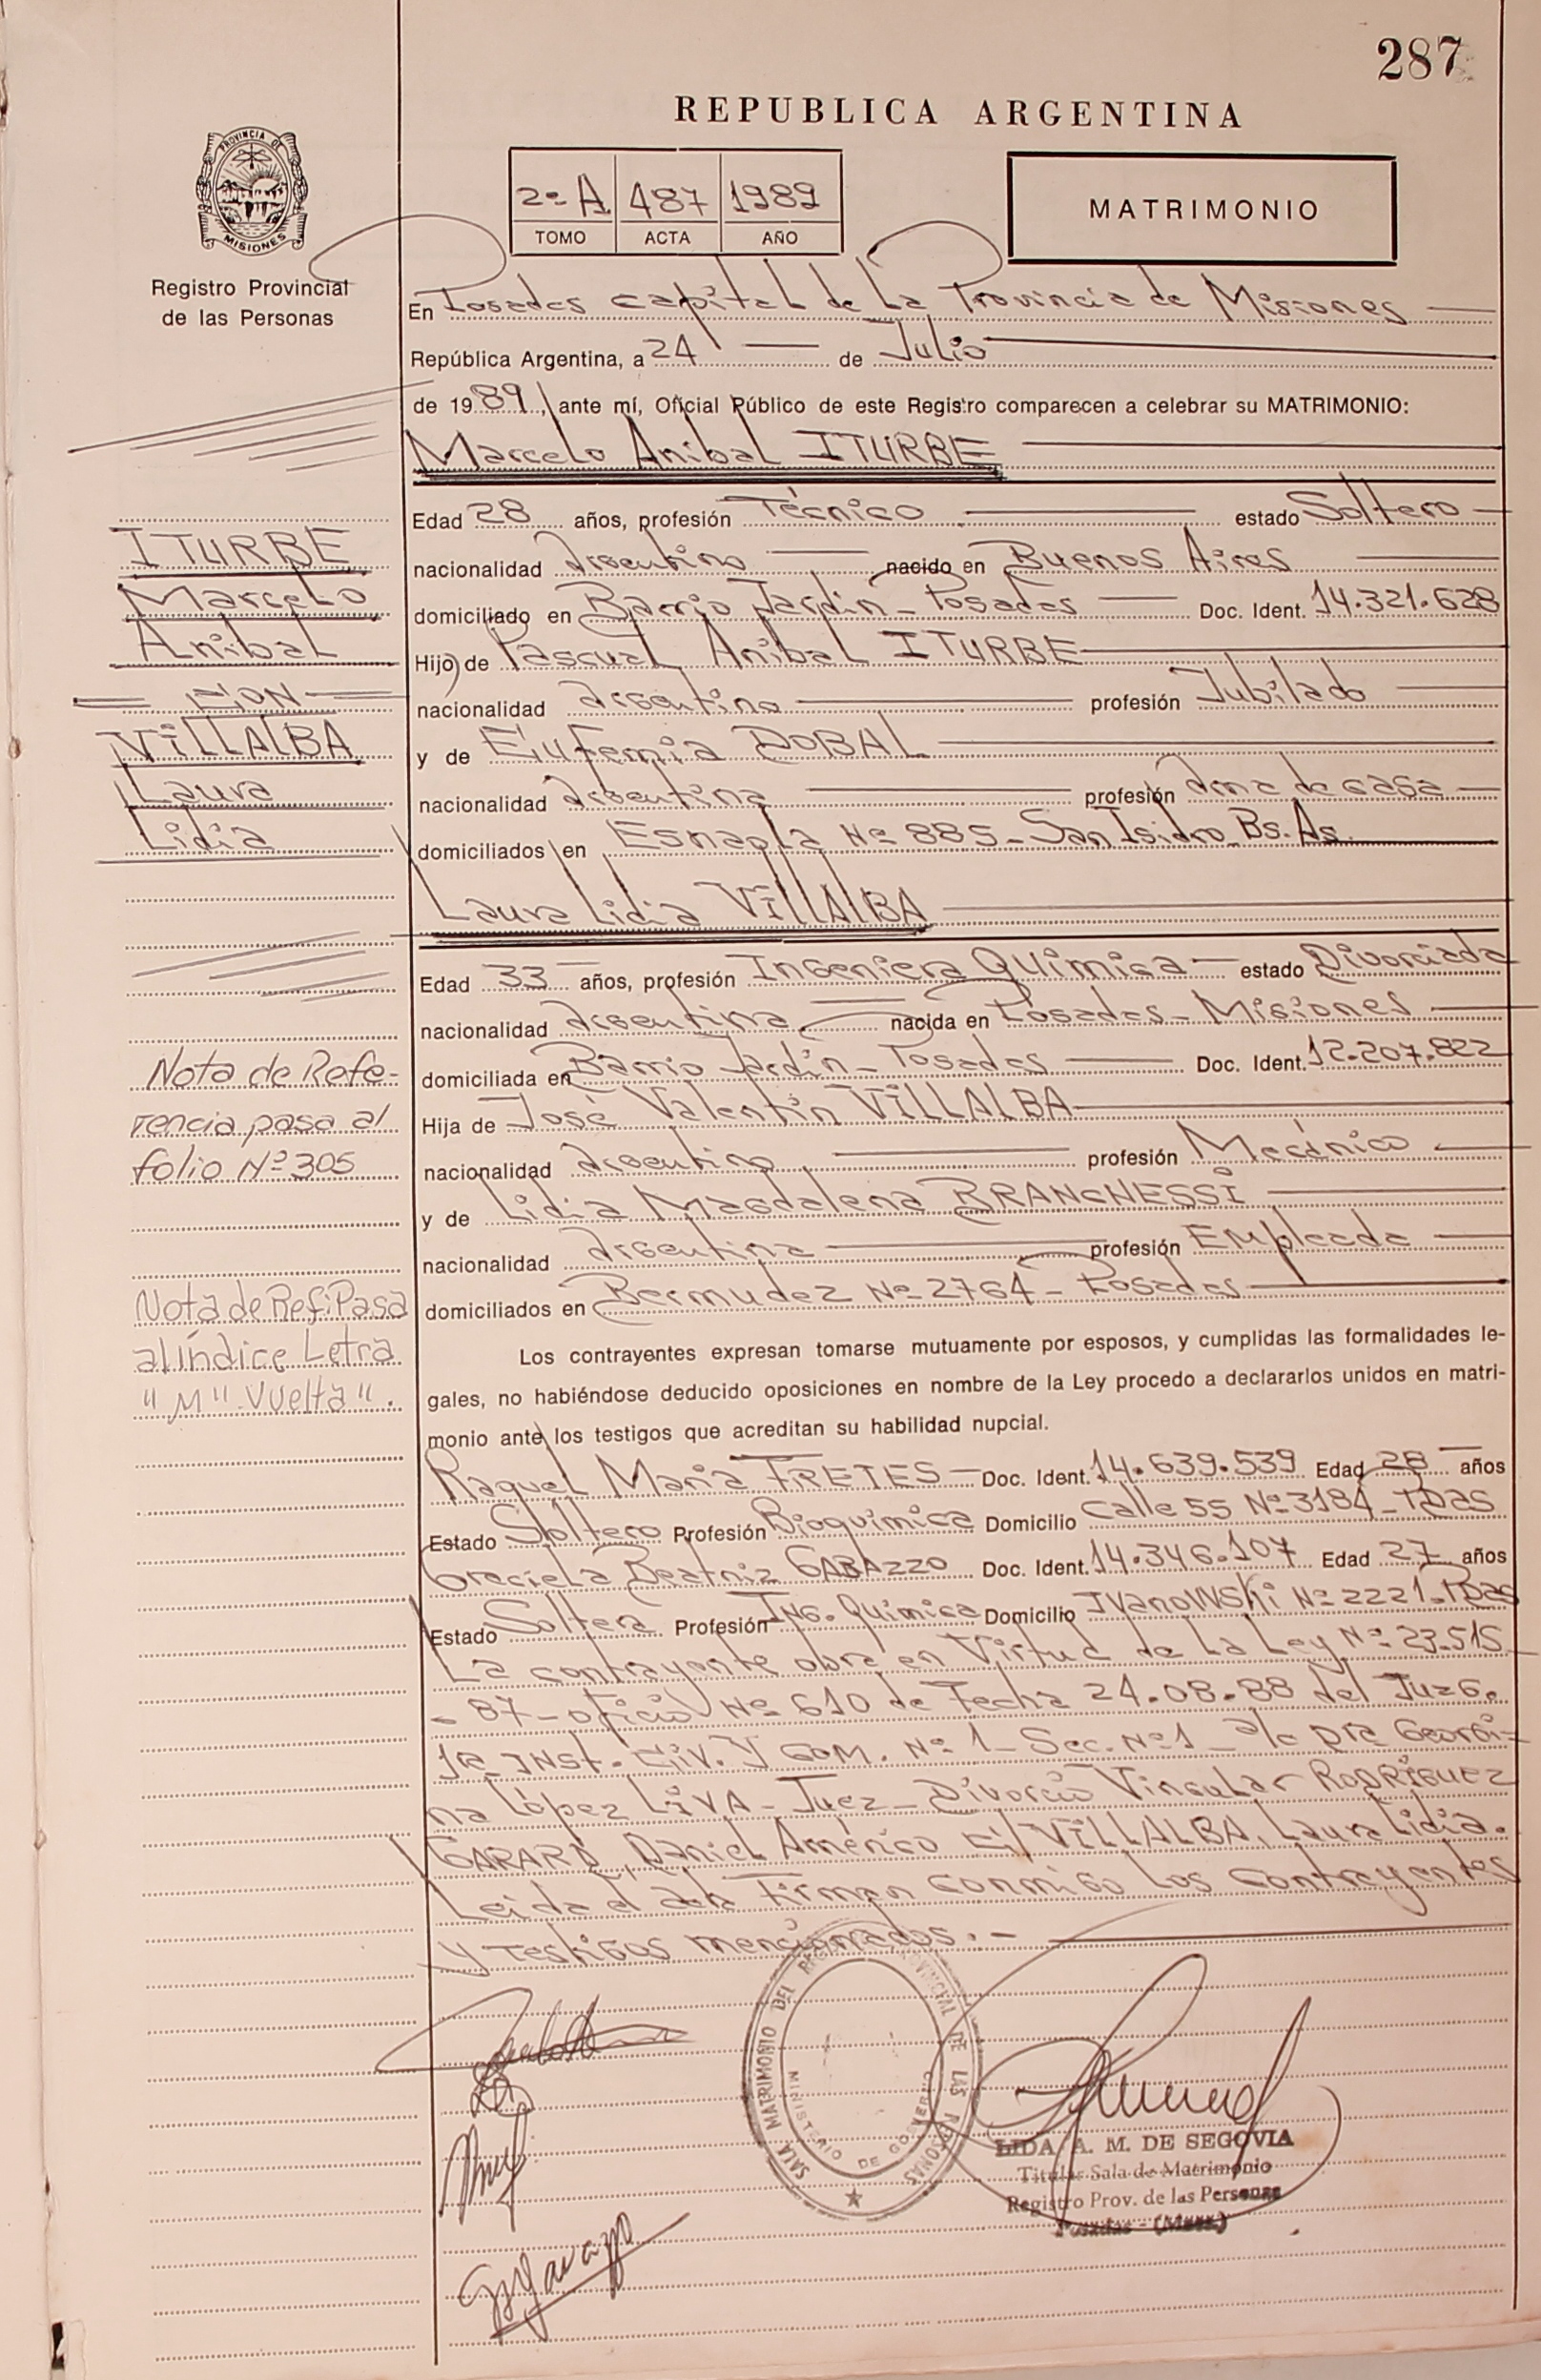 287
REPUBLICA ARGENTINA
PROVINCIA DE
MISIONES
Registro Provincial
de las Personas
2º A 487 1989
TOMO ACTA AÑO
MATRIMONIO
En Posadas capital de La Provincia de Misiones
República Argentina, a 24 de Julio
de 1989, ante mí, Oficial Público de este Registro comparecen a celebrar su MATRIMONIO:
Marcelo Anibal ITURBE
Edad 28 años, profesión Técnico estado Soltero
nacionalidad Argentino nacido en Buenos Aires
domiciliado en Barrio Jardín - Posadas Doc. Ident. 14.321.628
Hijo de Pascual Anibal ITURBE
nacionalidad Argentino profesión Jubilado
y de Eufemia DOBAL
nacionalidad Argentina profesión Ama de casa
domiciliados en Esnaola Nº 885 - San Isidro Bs. As.
Laura Lidia VILLALBA
Edad 33 años, profesión Ingeniera Química estado Divorciada
nacionalidad Argentina nacida en Posadas - Misiones
domiciliada en Barrio Jardín - Posadas Doc. Ident. 12.207.822
Hija de José Valentín VILLALBA
nacionalidad Argentino profesión Mecánico
y de Lidia Magdalena BRANCHESSI
nacionalidad Argentina profesión Empleada
domiciliados en Bermudez Nº 2764 - Posadas
Los contrayentes expresan tomarse mutuamente por esposos, y cumplidas las formalidades le-
gales, no habiéndose deducido oposiciones en nombre de la Ley procedo a declararlos unidos en matri-
monio ante los testigos que acreditan su habilidad nupcial.
Raquel María FRETES Doc. Ident. 14.639.539 Edad 28 años
Estado Soltero Profesión Bioquímica Domicilio Calle 55 Nº 3184 - Pdas
Graciela Beatriz GABAZZO Doc. Ident. 14.346.107 Edad 27 años
Estado Soltera Profesión Ing. Química Domicilio Ivanowski Nº 2221 - Pdas
La contrayente obra en Virtud de La Ley Nº 23.515
- 87 - oficio Nº 610 de Fecha 24.08.88 del Juzg.
1ª Inst. Civ. y Com. Nº 1 - Sec. Nº 1 - a/c Dra Georgi-
na López LIVA - Juez - Divorcio Vincular RODRIGUEZ
Daniel Américo c/ VILLALBA, Laura Lidia.
Leída el acta Firman conmigo Los contrayentes
y testigos mencionados. -
ITURBE
Marcelo
Anibal
CON
VILLALBA
Laura
Lidia
Nota de Refe-
rencia pasa al
folio Nº 305
Nota de Ref: Pasa
al índice Letra
"M" Vuelta".
SALA MATRIMONIO DEL REGISTRO PROVINCIAL DE LAS PERSONAS
MINISTERIO DE GOBIERNO
LIDA A. M. DE SEGOVIA
Titular Sala de Matrimonio
Registro Prov. de las Personas
Posadas - (Mnes.)